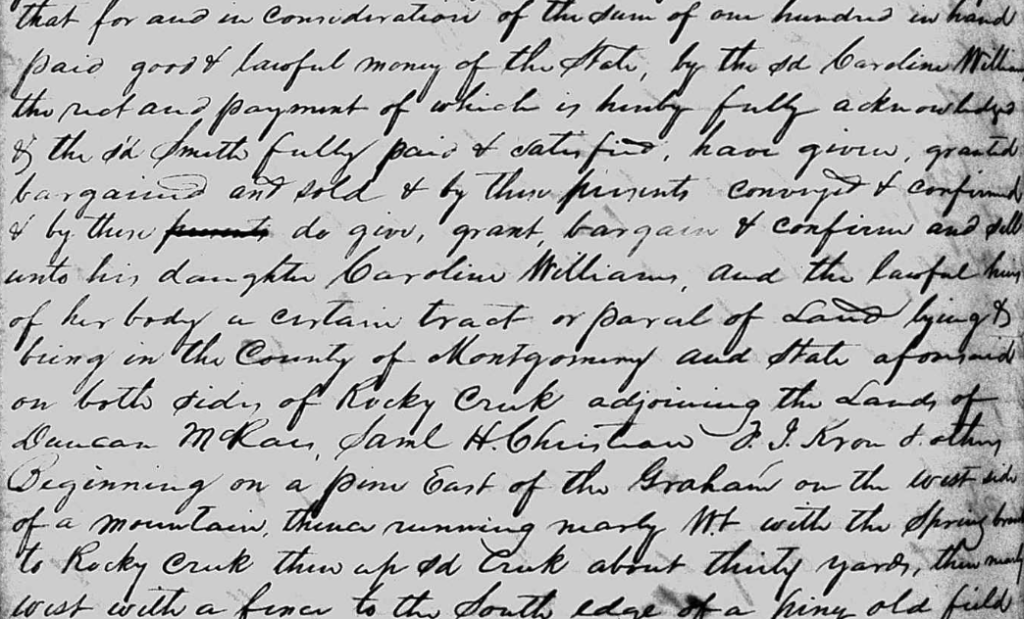 that for and in consideration of the sum of one hundred in hand
paid good & lawful money of the State, by the sd Caroline William
the rect and payment of which is hereby fully acknowledged
& the sd Smith fully paid & satisfied, have given, granted
bargained and sold & by these presents conveyed & confirmed
& by these presents do give, grant, bargain & confirm and sell
unto his daughter Caroline Williams, and the lawful heirs
of her body a certain tract or parcel of Land lying &
being in the County of Montgomery and State aforesaid
on both sides of Rocky Creek adjoining the Lands of
Duncan McRaes, Saml H. Christian F. J. Kron & others
Beginning on a pine East of the Graham on the west side
of a mountain, thence running nearly Wt with the Spring branch
to Rocky Creek then up sd Creek about thirty yards, then nearly
west with a fence to the South edge of a piny old field